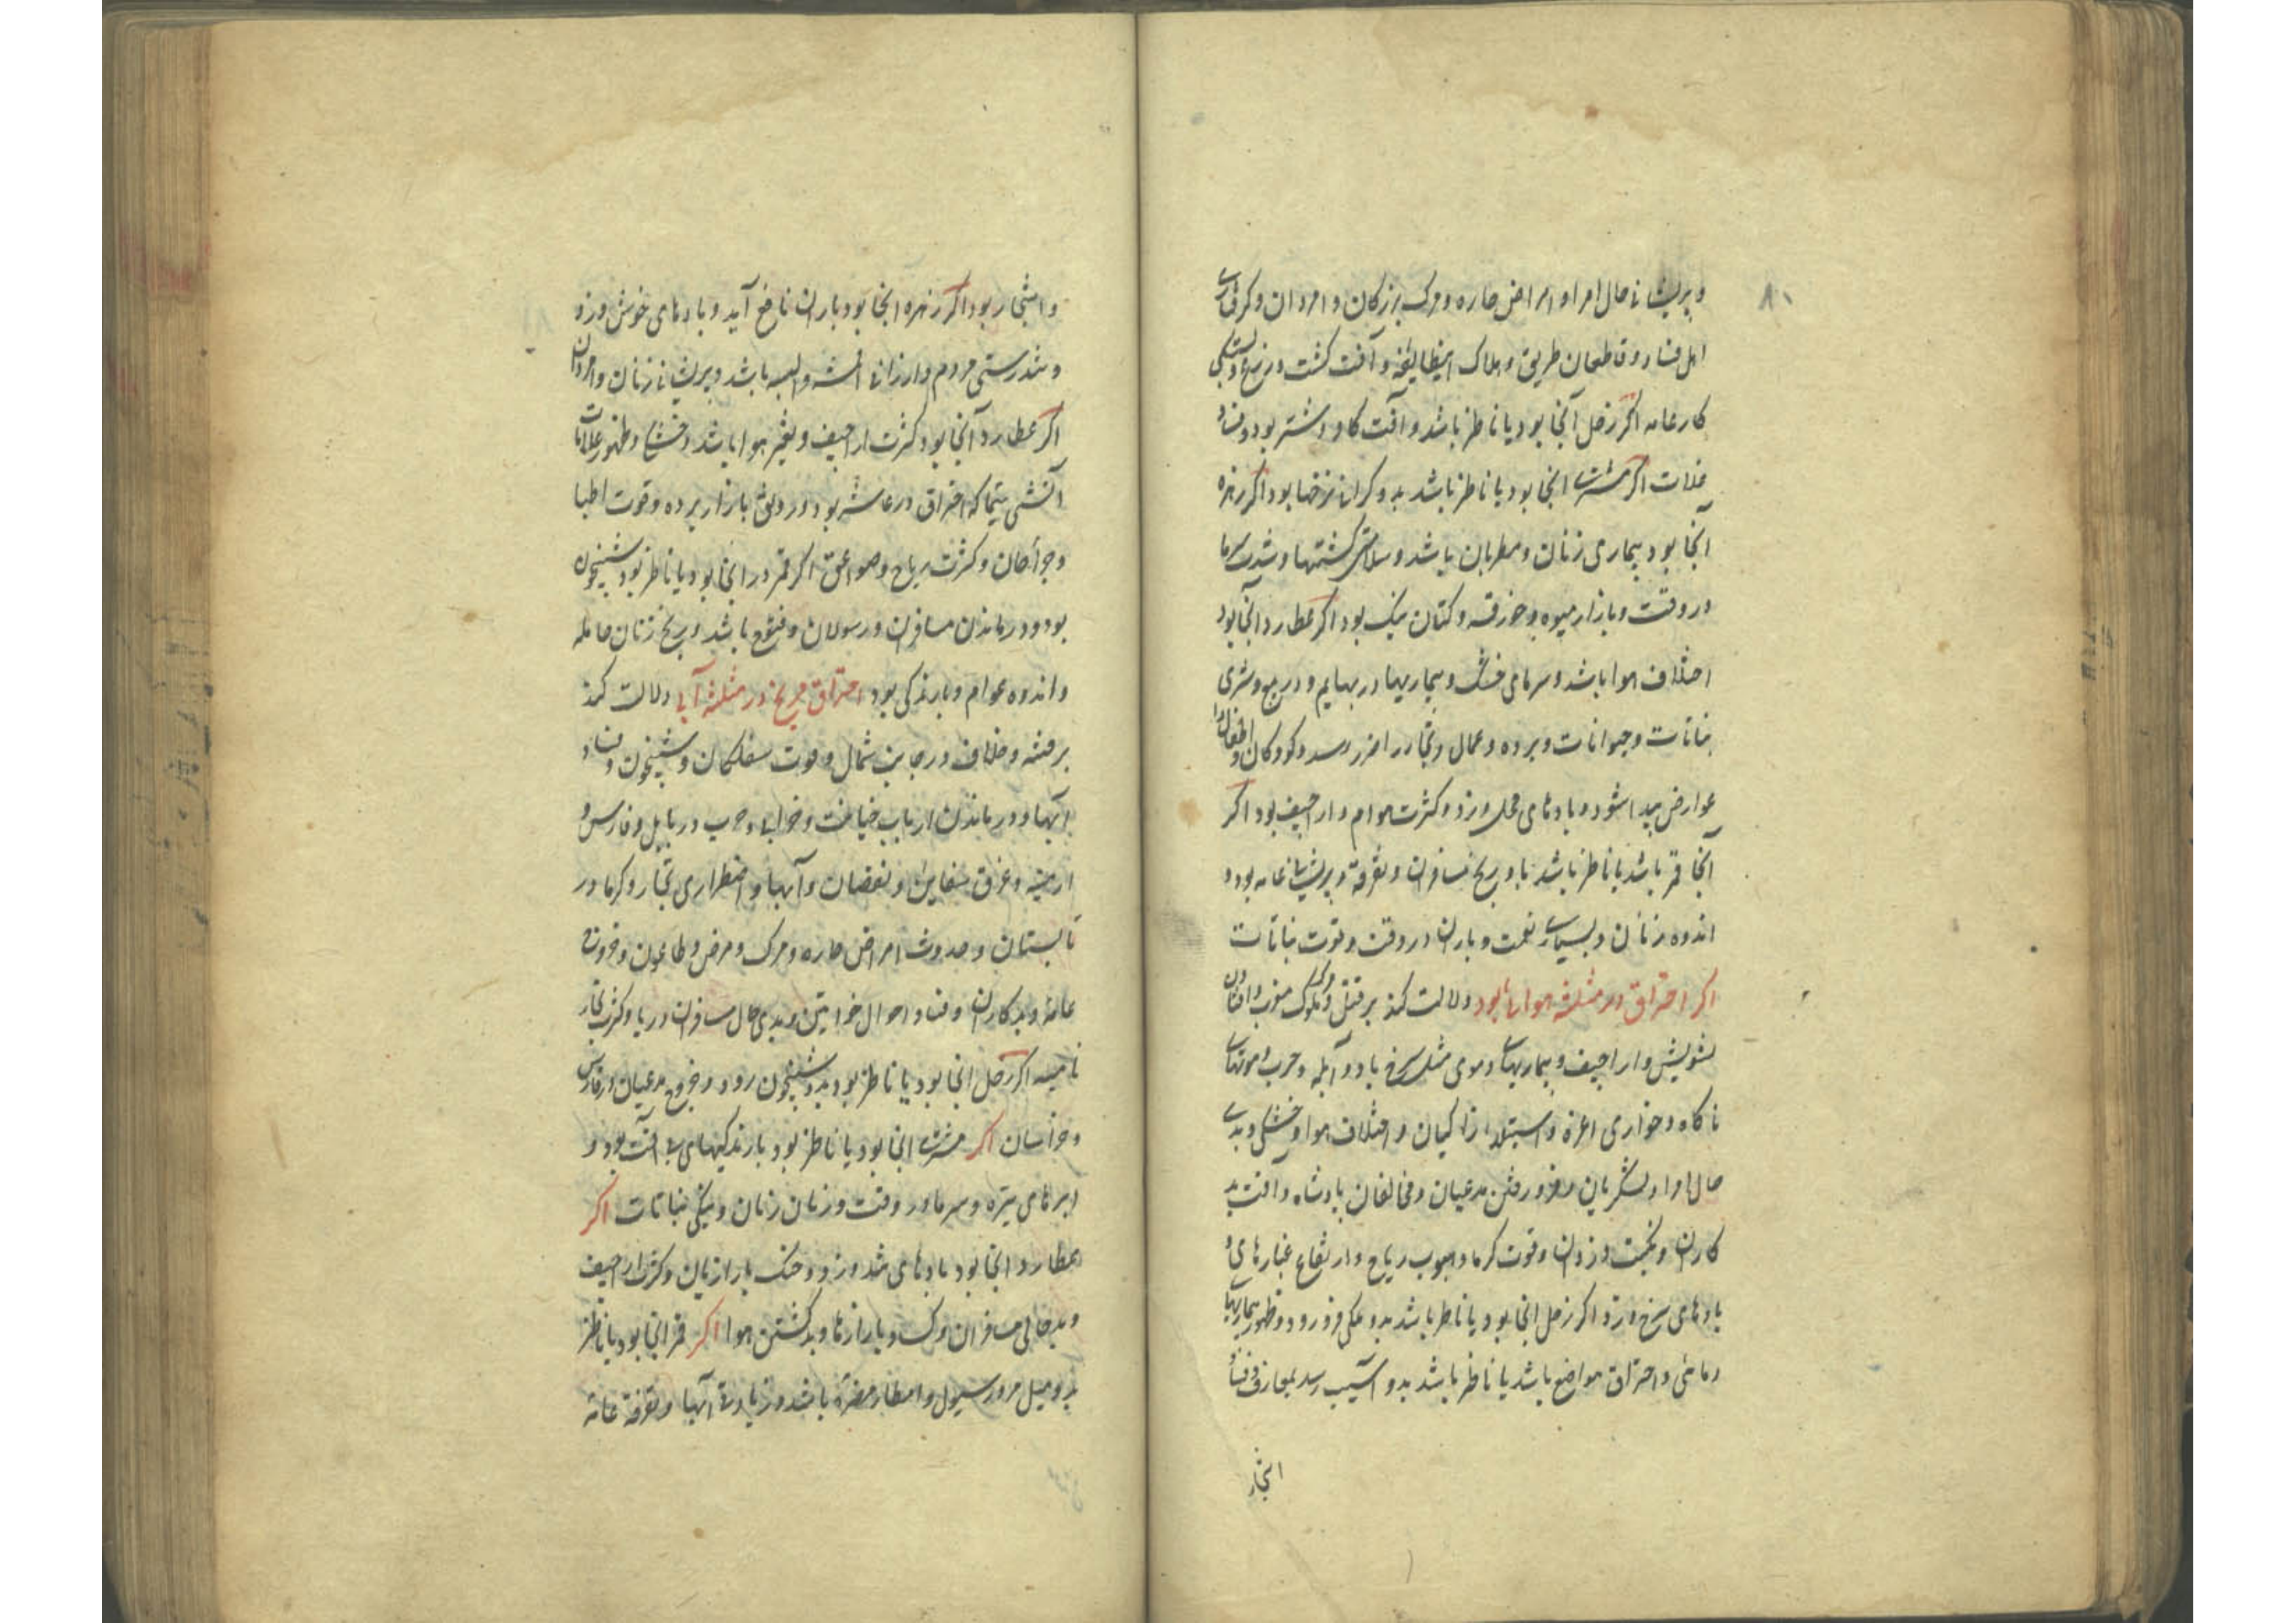 ۸۰
و پریشانی حال امرا و امراض حاره و مرک بزرکان و امردان و کرفتاری
اهل فساد و قاطعان طریق و هلاک این طایفه و آفت کشت و زرع و بستکی
کار عامه اکر زحل آنجا بود یا ناظر باشد و آفت کاو و شتر بود و فساد
غلات اکر مشتری انجا بود یا ناظر باشد بدو کرانی نرخها بود اکر زهره
آنجا بود بیماری زنان و مطربان باشد و سلامتی کشتیها و شدت سرما
در وقت و بازار میوه و خرقه و کتان نیک بود اکر عطارد آنجا بود
اختلاف هوا باشد و سرمای خشک و بیماریها در بهایم و در بیع و شری
نباتات و حیوانات و برده و عمال و تجار را ضرر رسد و کودکان و اطفال را
عوارض پیدا شود و بادهای مخل وزد و کثرت هوام و اراجیف بود اکر
آنجا قمر باشد یا ناظر باشد باو رنج مسافران و تفرقه و پریشانی عامه بود و
اندوه زنان و بسیاری نعمت و باران در وقت و قوت نباتات
اکر احتراق در مثلثه هوایی بود دلالت کند بر قتل ملوک مغرب و افتادن
تشویش و اراجیف و بیماریهای دموی مثل سرخ باد و آبله و جرب و موتهای
ناکاه و خواری اعزه و استیلاء زاکیان و اختلاف هوا و خشکی و بدی
حال امرا و لشکریان و فرو رفتن مدعیان و مخالفان پادشاه و آفت بد
کاران و نکبت دزدان و قوت کرما و هبوب ریاح و ارتفاع غبارهای و
بادهای سرخ وزد اکر زحل انجا بود یا ناظر باشد بدو ملکی فرو رود و ظهور بیماریهای
دماغی و احتراق مواضع باشد یا ناظر باشد بدو آسیب رسد بمعارف و فساد
اشجار
و اشجار بود اکر زهره انجا بود باران نافع آید و بادهای خوش وزد
و تندرستی مردم و ارزانی اقمشه و البسه باشد و پریشانی زنان و امردان
اکر عطارد آنجا بود کثرت اراجیف و تغیر هوا باشد و خشکی و ظهور علامات
آتشی سیما که احتراق در عاشر بود و رونق بازار برده و قوت اطبا
و جراحان و کثرت ریاح و صواعق اکر قمر در انجا بود یا ناظر بود شبیخون
بود و درماندن مسافران و رسولان و فتوح باشد و رنج زنان حامله
و اندوه عوام و بارندکی بود احتراق مریخ در مثلثه آبی دلالت کند
بر فتنه و خلاف در جانب شمال و قوت سفلکان و شبیخون و فساد
آبها و درماندن ارباب خیانت و خرابی و حرب در بابل و فارس و
ارمنیه و غرق سفاین و نقصان آبها و اضطراری تجار و کرما در
تابستان و حدوث امراض حاره و مرک و مرض و طاعون و خروج
عامه و بدکاران و فساد احوال خواتین و بدی حال مسافران دریا و کثرت بخار
نامیه اکر زحل انجا بود یا ناظر بود بدو شبیخون رود و خروج مدعیان در فارس
و خراسان اکر مشتری انجا بود یا ناظر بود بارندکیهای بی آفت بود و
ابرهای تیره و سرما در وقت و زمان زنان و نیکی نباتات اکر
عطارد انجا بود بادهای تند وزد و جنک بازاریان و کثرت اراجیف
و بدحالی مسافران و کساد بازارها و بد کشتن هوا اکر قمر انجا بود یا ناظر
بدو میل مرور سیول و امطار مضره باشد و زیادتی آبها و تفرقه عامه